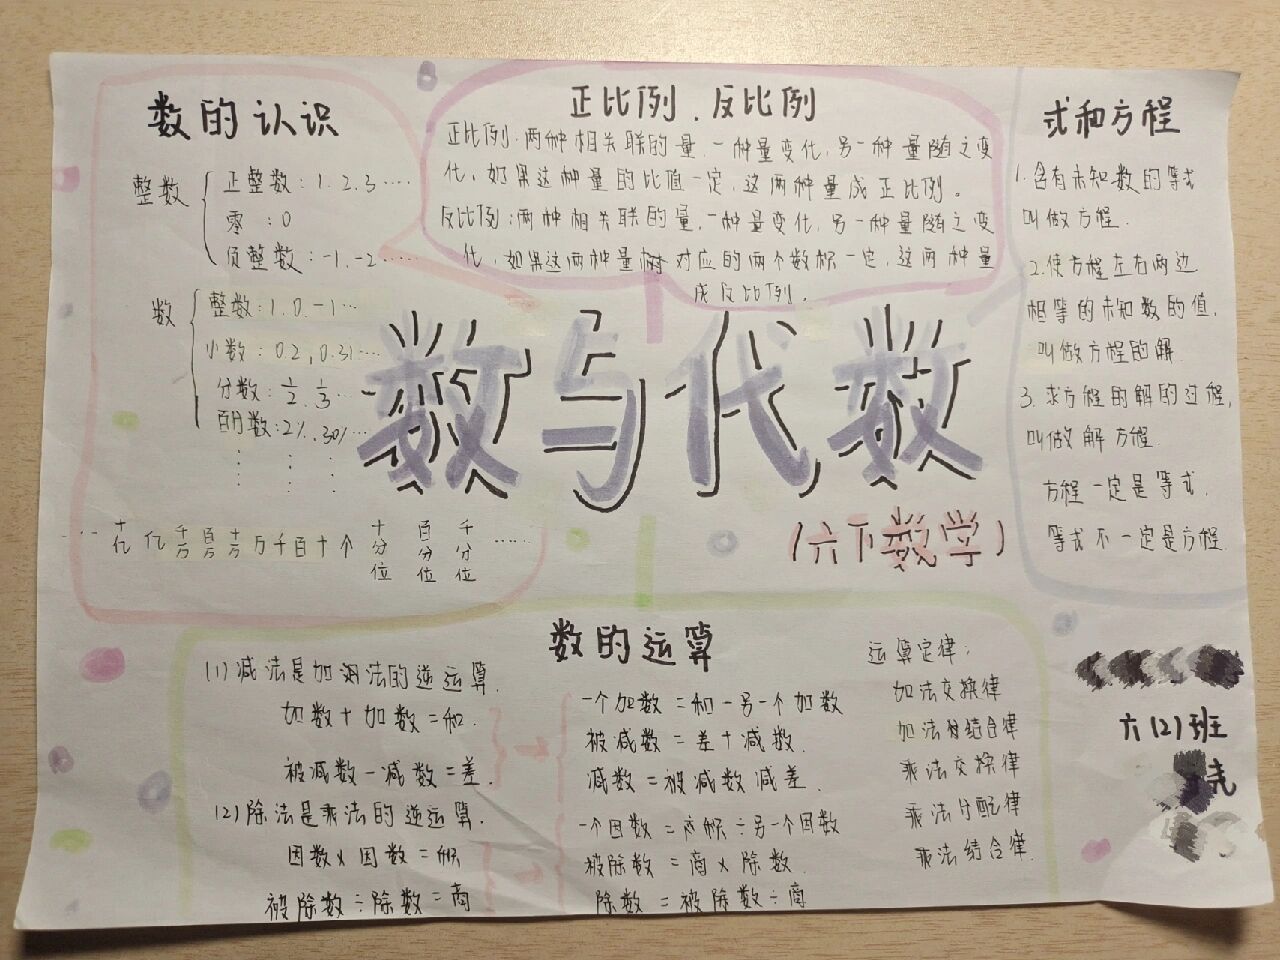 数的认识
整数
正整数：1.2.3……
零：0
负整数：-1.-2……
数
整数：1.0.-1…
小数：0.2,0.31…
分数：1/2.1/3…
百分数：2%.30%…
⋮ ⋮ ⋮
……十亿 亿 千万 百万 十万 万 千 百 十 个 十分位 百分位 千分位 ……
正比例、反比例
正比例：两种相关联的量，一种量变化，另一种量随之变
化，如果这种量的比值一定，这两种量成正比例。
反比例：两种相关联的量，一种量变化，另一种量随之变
化，如果这两种量 对应的两个数积一定，这两种量
成反比例。
式和方程
1.含有未知数的等式
叫做方程.
2.使方程左右两边
相等的未知数的值，
叫做方程的解.
3.求方程的解的过程，
叫做解方程.
方程一定是等式.
等式不一定是方程.
数与代数
(六下数学)
数的运算
(1)减法是加 法的逆运算.
加数+加数=和.
被减数-减数=差.
(2)除法是乘法的逆运算.
因数×因数=积
被除数÷除数=商
一个加数=和-另一个加数
被减数=差+减数.
减数=被减数减差.
一个因数= 积÷另一个因数
被除数=商×除数.
除数=被除数÷商
运算定律：
加法交换律
加法 结合律
乘法交换律
乘法分配律
乘法结合律.
六(2)班